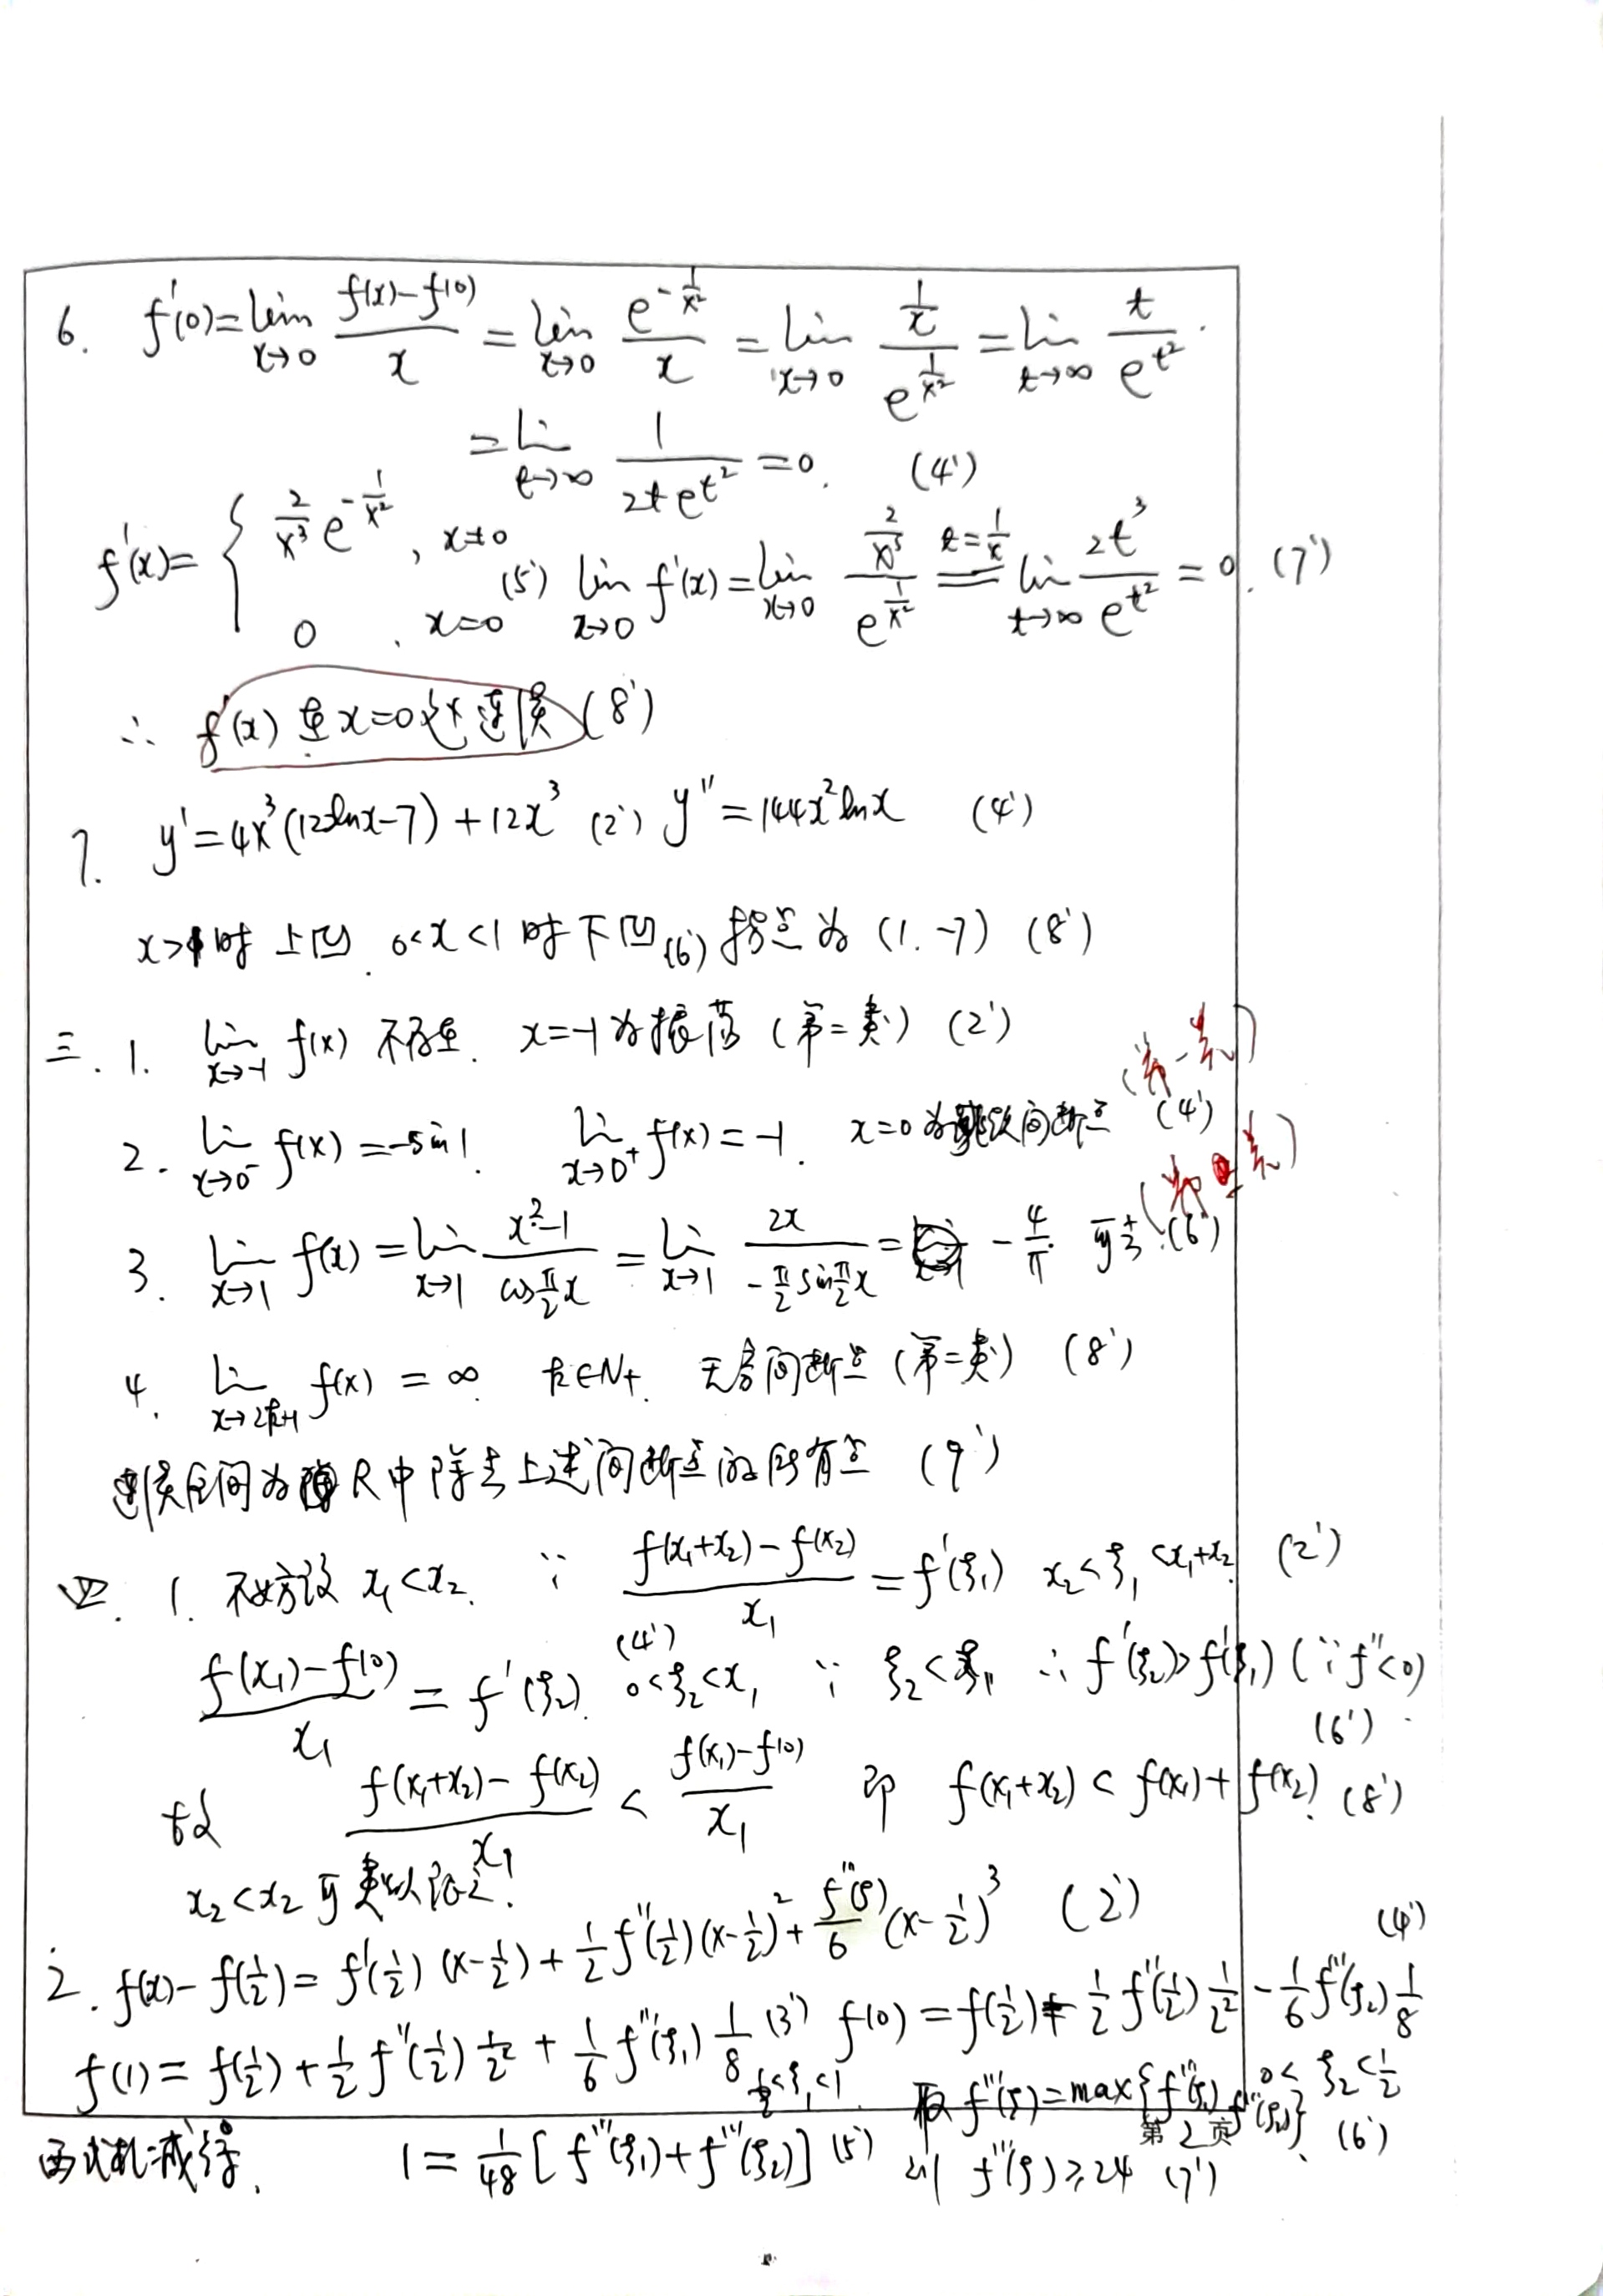 6. f'(0)=lim_{x→0} (f(x)-f(0))/x = lim_{x→0} e^{-1/x²}/x = lim_{x→0} (1/x)/e^{1/x²} = lim_{t→∞} t/e^{t²}.
= lim_{t→∞} 1/(2te^{t²}) = 0. (4')
f'(x)= { 2/x³ e^{-1/x²}, x≠0 ; 0, x=0 (5') lim_{x→0} f'(x) = lim_{x→0} (2/x³)/e^{1/x²} =(t=1/x)= lim_{t→∞} 2t³/e^{t²} = 0. (7')
∴ f'(x)在x=0处连续 (8')
7. y'=4x³(12lnx-7)+12x³ (2') y''=144x²lnx (4')
x>1时上凹. 0<x<1时下凹(6') 拐点为 (1.-7) (8')
三. 1. lim_{x→-1} f(x) 不存在. x=-1为振荡 (第二类) (2')
(第一类)
2. lim_{x→0⁻} f(x)=-sin1. lim_{x→0⁺} f(x)=-1. x=0为跳跃间断点 (4')
(第一类)
3. lim_{x→1} f(x) = lim_{x→1} (x²-1)/(cos π/2 x) = lim_{x→1} 2x/(-π/2 sin π/2 x) = -4/π. 可去.(6')
4. lim_{x→2k+1} f(x) = ∞. k∈N₊. 无穷间断点 (第二类) (8')
连续区间为R中除去上述间断点的所有点 (9')
四. 1. 不妨设 x₁<x₂. ∵ (f(x₁+x₂)-f(x₂))/x₁ = f'(ξ₁) x₂<ξ₁<x₁+x₂. (2')
(f(x₁)-f(0))/x₁ = f'(ξ₂). (4') 0<ξ₂<x₁ ∵ ξ₂<ξ₁ ∴ f'(ξ₂)>f'(ξ₁) (∵f''<0)
(6')
故 (f(x₁+x₂)-f(x₂))/x₁ < (f(x₁)-f(0))/x₁ 即 f(x₁+x₂)<f(x₁)+f(x₂). (8')
x₂<x₂ 可类似证之!
2. f(x)-f(1/2)=f'(1/2)(x-1/2)+1/2 f''(1/2)(x-1/2)²+f'''(ξ)/6 (x-1/2)³ (2')
(4')
f(1)=f(1/2)+1/2 f''(1/2) 1/2² + 1/6 f'''(ξ₁) 1/8 (3') f(0)=f(1/2)+1/2 f''(1/2) 1/2² - 1/6 f'''(ξ₂) 1/8
1/2<ξ₁<1. 0<ξ₂<1/2
取 f'''(ξ)=max{f'''(ξ₁), f'''(ξ₂)}. (6')
第 2 页
两式相减得. 1=1/48[f'''(ξ₁)+f'''(ξ₂)] (5') 则 f'''(ξ)≥24 (7')